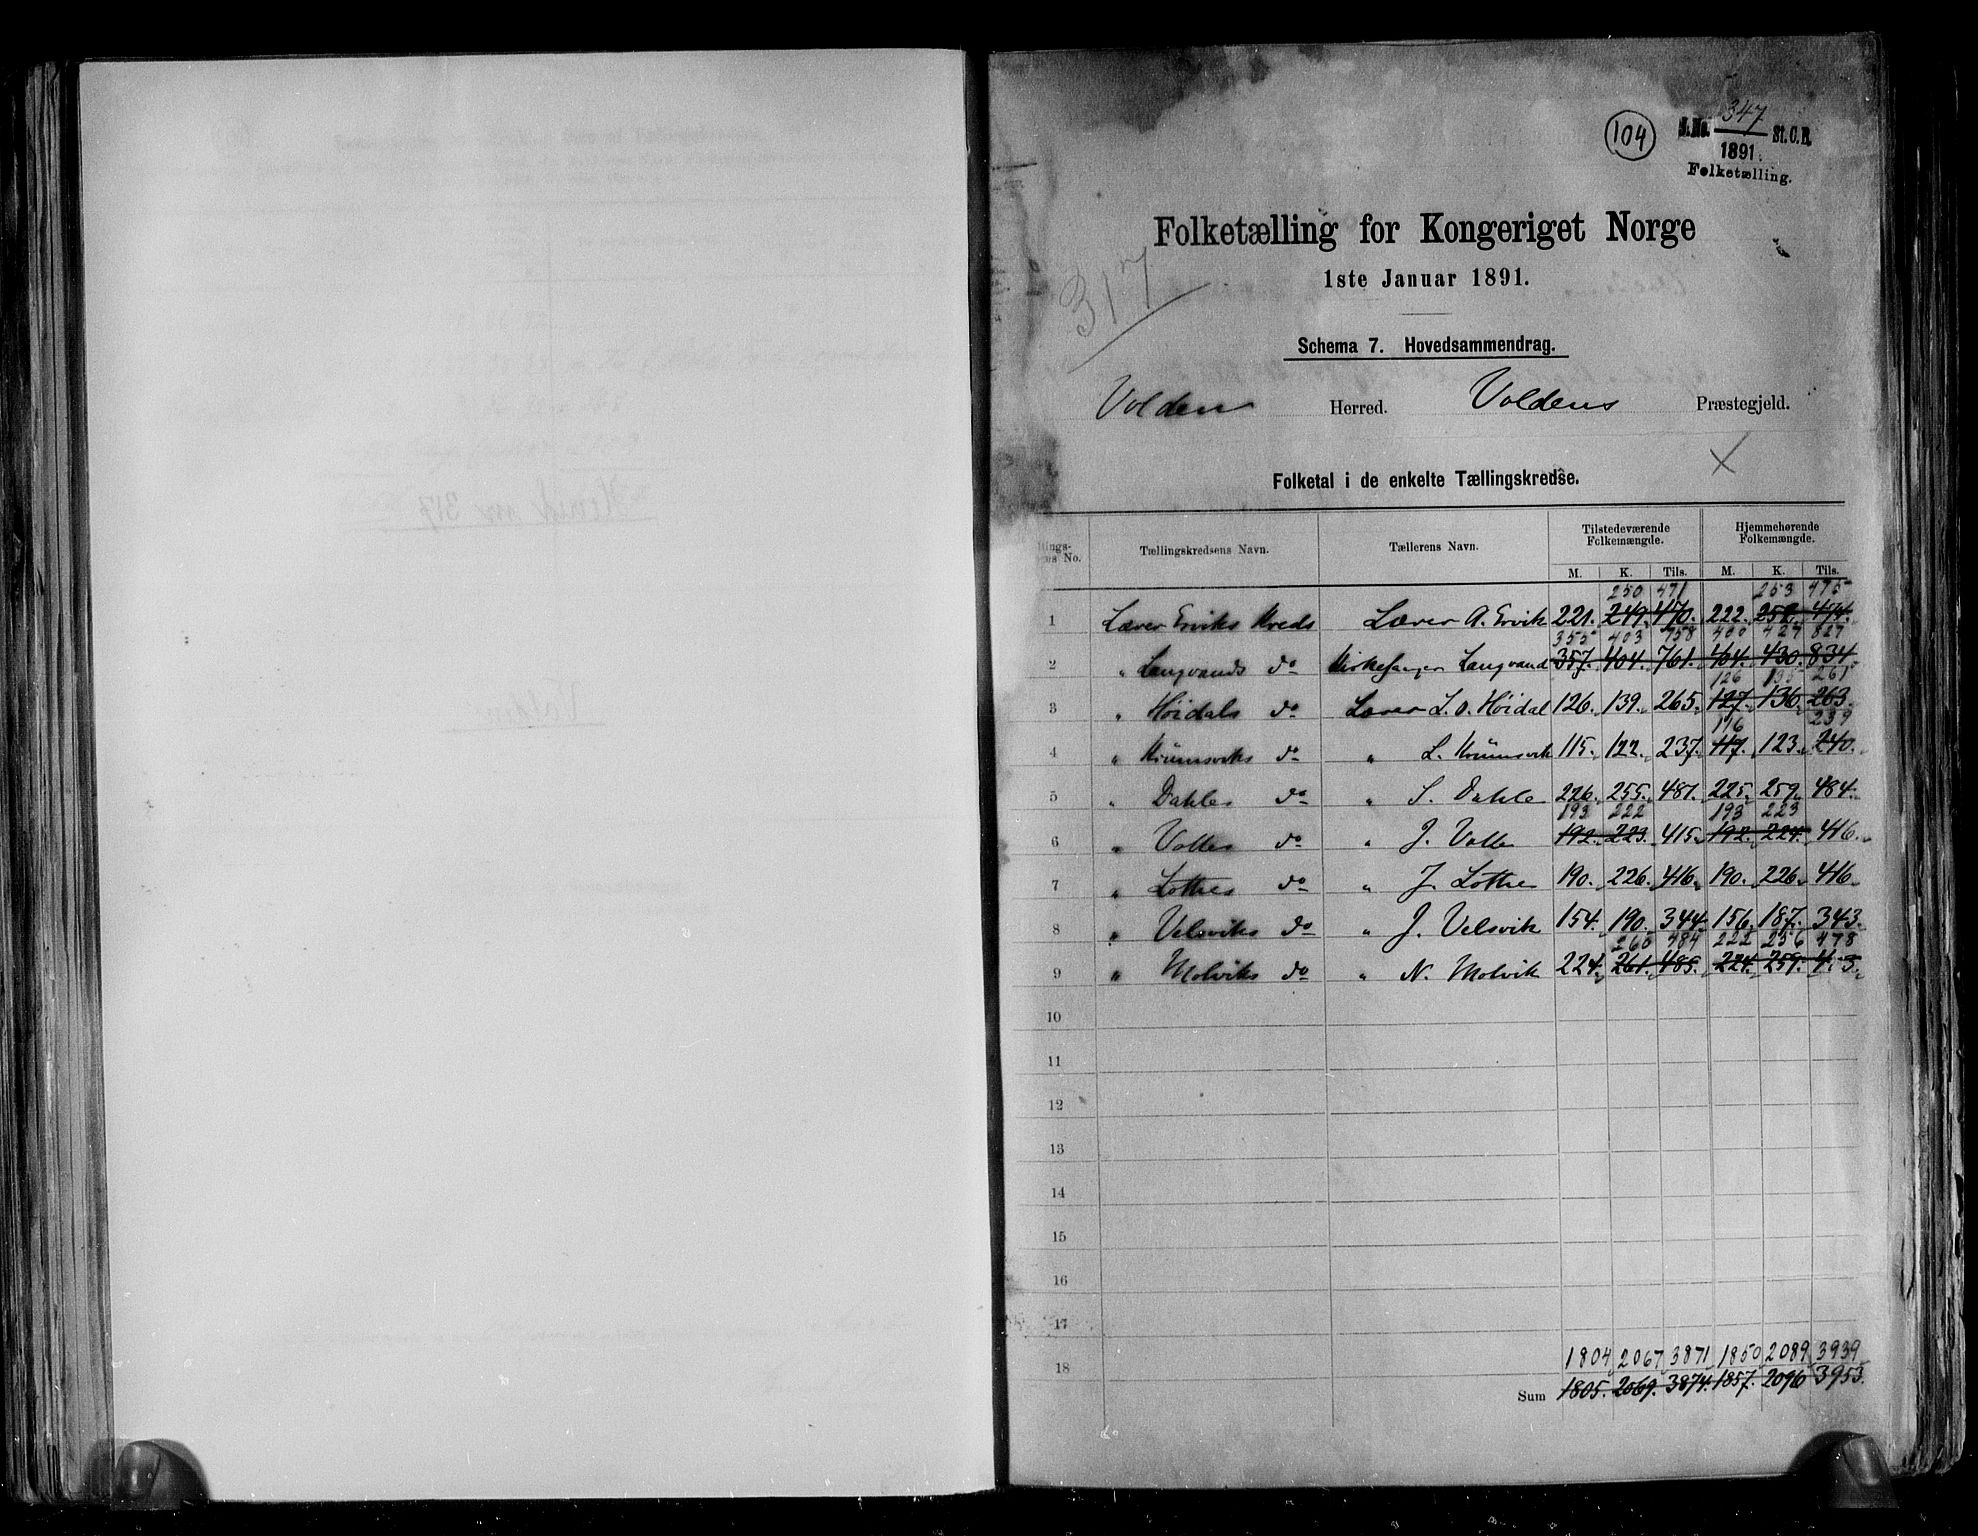 104
J.No. 347 St.C.B.
1891.
Folketælling.
Folketælling for Kongeriget Norge
1ste Januar 1891.
317
Schema 7. Hovedsammendrag.
Volden Herred. Voldens Præstegjeld.
Folketal i de enkelte Tællingskredse.
Tællingskredsens Navn. Tællerens Navn. Tilstedeværende Folkemængde. Hjemmehørende Folkemængde.
M. K. Tils. M. K. Tils.
250 471 253 475
1 Lærer Erviks Kreds Lærer A. Ervik 221. 249. 470. 222. 252. 474.
355 403 758 400 427 827
2 " Langvands do Kirkesanger Langvand 357. 404. 761. 404. 430. 834.
126 135 261
3 " Høidals do Lærer L. O. Høidal 126. 139. 265. 127. 136. 263.
116 239
4 " Krumsviks do " L. Krumsvik 115. 122. 237. 117. 123. 240.
5 " Dahles do " S. Dahle 226. 255. 481. 225. 259. 484.
193 222 193 223
6 " Vattes do " J. Vatte 192. 223. 415. 192. 224. 416.
7 " Lothes do " J. Lothe 190. 226. 416. 190. 226. 416.
8 " Velsviks do " J. Velsvik 154. 190. 344. 156. 187. 343.
260 484 222 256 478
9 " Molviks do " N. Molvik 224. 261. 485. 224. 259.
10
11
12
13
14
15
16
17
1804 2067 3871 1850 2089 3939
18
Sum 1805. 2069. 3874. 1857. 2096 3953.